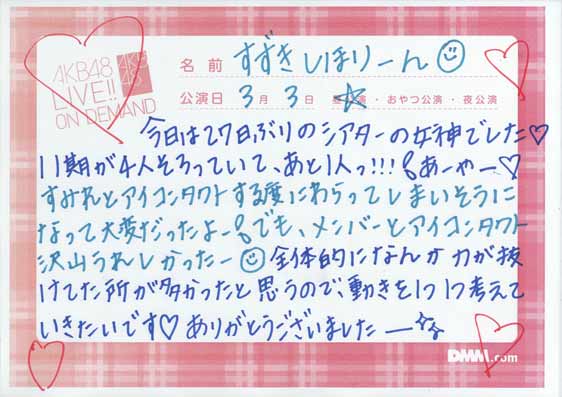 AKB48
LIVE!!
ON DEMAND
AKB
48
名前 すずき しほりーん
公演日 3月 3日 ・おやつ公演・夜公演
今日は27日ぶりのシアターの女神でした♡
11期が4人そろっていて、あと1人っ!!! あーやー♡
すみれとアイコンタクトする度にわらってしまいそうに
なって大変だったよー! でも、メンバーとアイコンタクト
沢山うれしかったー
全体的になんか力が抜
けてた所が多かったと思うので、動きを1つ1つ考えて
いきたいです♡ ありがとうございましたー☆
DMM.com